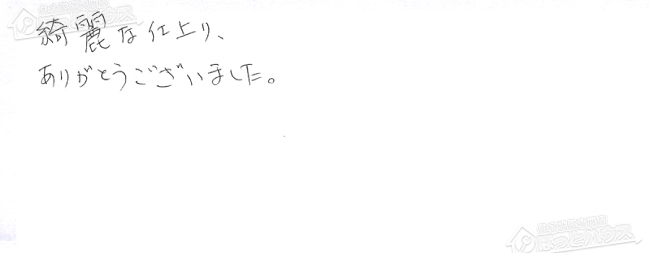 綺麗な仕上り、
ありがとうございました。